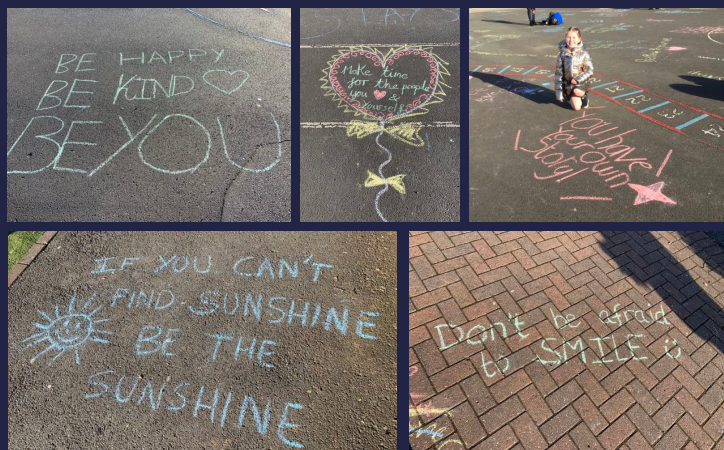 BE HAPPY
BE KIND
BE YOU
Make time
for the people
you &
Yourself
You have
Your own
Story!
IF YOU CAN'T
FIND SUNSHINE
BE THE
SUNSHINE
Don't be afraid
to SMILE